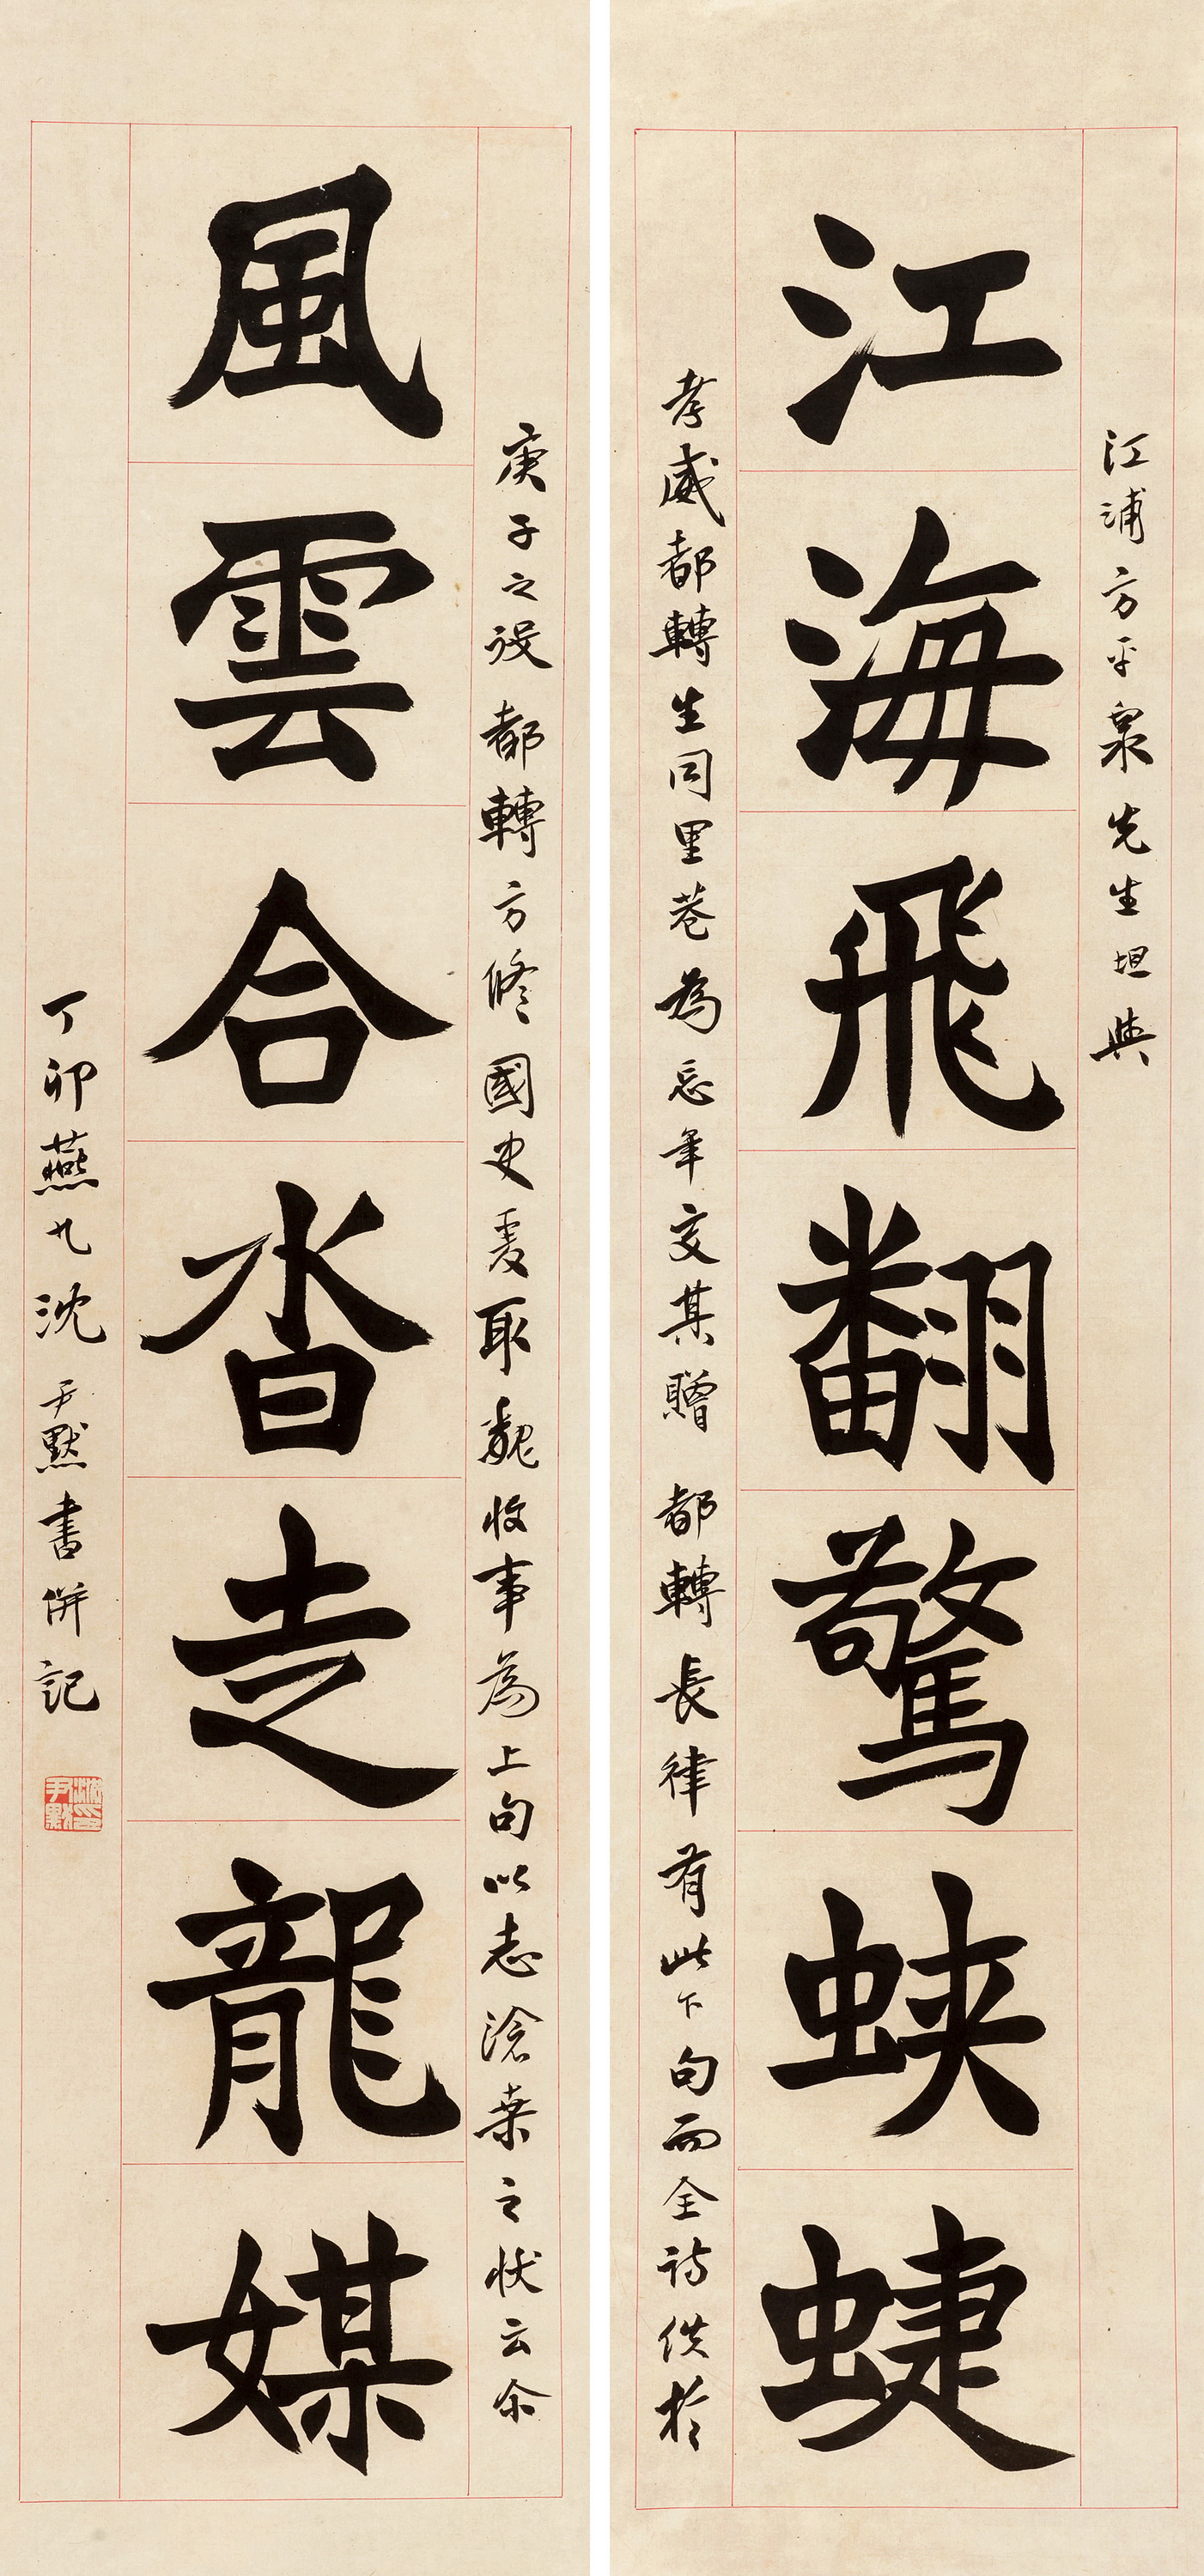 江浦方平泉先生坦與
江海飛翻驚蛺蜨
孝威都轉生同里巷為忘年交其贈都轉長律有此下句而全詩佚於
庚子之役都轉方修國史爰取魏收事為上句以志滄桑之狀云尒
風雲合沓走龍媒
丁卯燕九沈尹默書併記